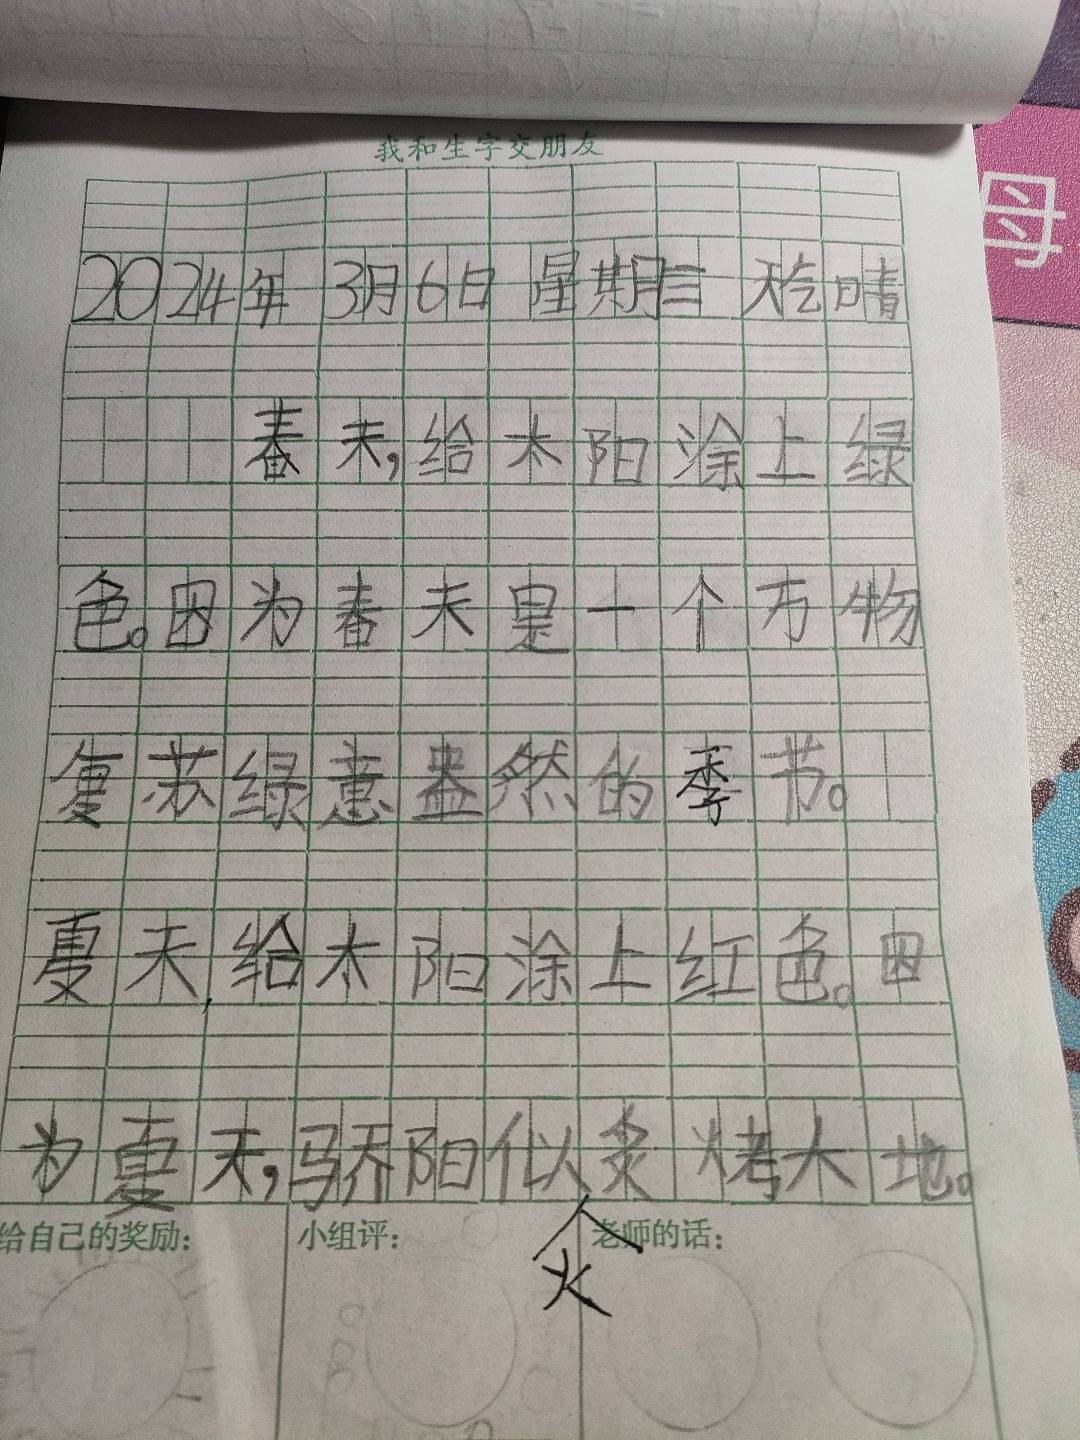 我和生字交朋友
母
2024年 3月6日 星期三 天气晴
春天,给太阳涂上绿
色。因为春天是一个万物
复苏绿意盎然的季节。
夏天,给太阳涂上红色。因
为夏天,骄阳似炙烤大地。
火
给自己的奖励:
小组评:
老师的话: